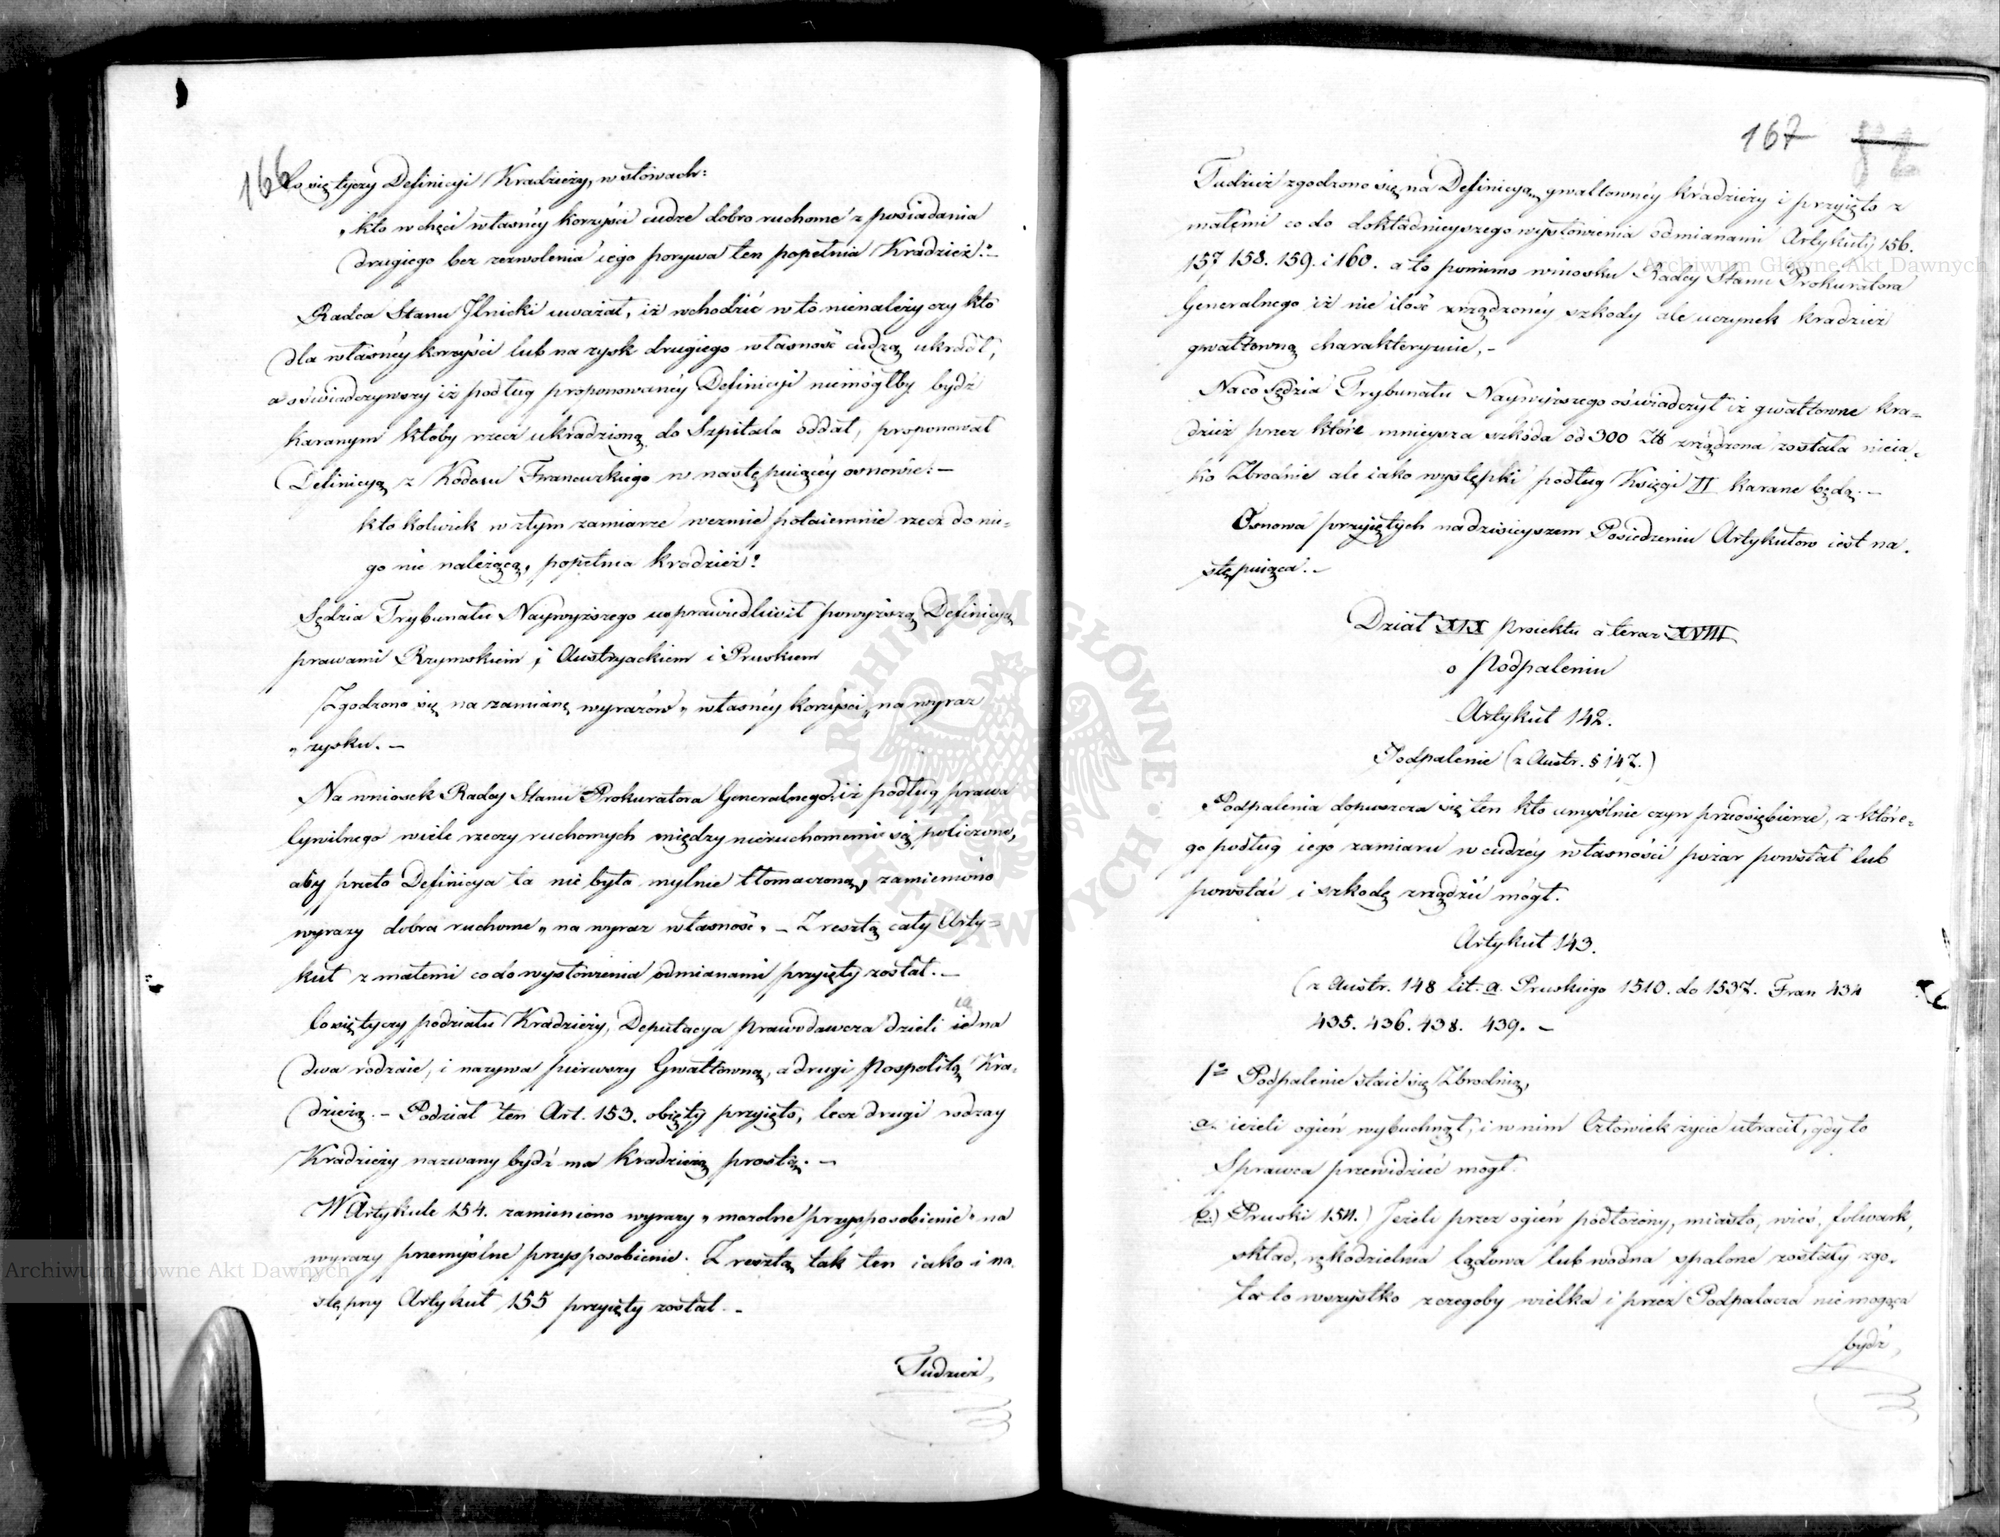 166
Co się tyczy Definicyi Kradzieży, w słowach:
„kto w chęci własnéy korzyści cudze dobro ruchome z posiadania
drugiego bez zezwolenia iego porywa ten popełnia Kradzież.“ –
Radca Stanu Ilnicki uważał, iż wchodzić w to nienależy czy kto
dla własnéy korzyści lub na zysk drugiego własność cudzą ukradł,
a oświadczywszy iż podług proponowanéy Definicyi niemógłby bydź
karanym ktoby rzecz ukradzioną do Szpitala oddał, proponował
Definicyą z Kodexu Francuzkiego w następuiącéy osnowie: –
kto kolwiek w złym zamiarze weźmie potaiemnie rzecz do nie=
go nie należącą, popełnia kradzież:
Sędzia Trybunału Naywyższego usprawiedliwił powyższą Definicyą
prawami Rzymskiem, i Austryackiem i Pruskiem
Zgodzono się na zamianę wyrazów „własnéy korzyści„ na wyraz
„zysku. –
Na wniosek Radcy Stanu Prokuratora Generalnego, iż podług prawa
Cywilnego wiele rzeczy ruchomych między nieruchomemi są policzone,
aby przeto Definicya ta nie była mylnie tłomaczoną, zamieniono
wyrazy dobra ruchome„ na wyraz własność„ – Zresztą cały Arty=
kuł z małemi co do wysłowienia odmianami przyięty został. –
Co się tyczy podziału Kradzieży, Deputacya prawodawcza dzieli ią na
dwa rodzaie, i nazywa pierwszy Gwałtowną, a drugi Pospolitą Kra=
dzieżą. – Podział ten Art. 153. obięty przyięto, lecz drugi rodzay
Kradzieży nazwany bydź ma kradzieżą prostą. –
W Artykule 154. zamieniono wyrazy „mozolne przysposobienie„ na
wyrazy przemyślne przysposobienie. Zresztą tak ten iako i na.
stępny Artykuł 155 przyięty został. –
Tudzież,
167
82
Tudzież zgodzono się na Definicyą gwałtownéy kradzieży i przyięto z
małemi co do dokładnieyszego wysłowienia odmianami Artykuły 156.
157 158. 159. i 160. a to pomimo wniosku Radcy Stanu Prokuratora
Generalnego iż nie ilość zrządzonéy szkody ale uczynek kradzież
gwałtowną charakteryzuie, –
Na co Sędzia Trybunału Naywyższego oświadczył iż gwałtowne kra=
dzież przez które mnieysza szkoda od 300 Zł zrządzona została nieia=
ko Zbrodnie ale iako występki podług Księgi II karane będą. –
Osnowa przyiętych na dzisieyszem Posiedzeniu Artykułow iest na.
stępuiąca. –
Dział XIX proiektu a teraz XVIII
o Podpaleniu
Artykuł 142.
Podpalenie (z Austr. § 147.)
Podpalenia dopuszcza się ten kto umyślnie czyn przedsiębierze, z które=
go podług iego zamiaru w cudzéy własności pożar powstał lub
powstać i szkodę zrządzić mógł.
Artykuł 143.
(z Austr. 148 lit. a. Pruskiego 1510. do 1537. Fran 434
435. 436. 438. 439. –
1º Podpalenie staie się Zbrodnią,
a. ieżeli ogień wybuchnął, i w nim Człowiek życie utracił, gdy to
Sprawca przewidzieć mógł.
b.) Pruski 1511.) Jeżeli przez ogień podłożony, miasto, wieś, folwark,
skład, rękodzielnia lądowa lub wodna spalone zostały zgo.
ła to wszystko z czegoby wielka i przez Podpalacza nie mogąca
bydź,
Archiwum Główne Akt Dawnych
Archiwum Główne Akt Dawnych
ARCHIWUM GŁÓWNE AKT DAWNYCH